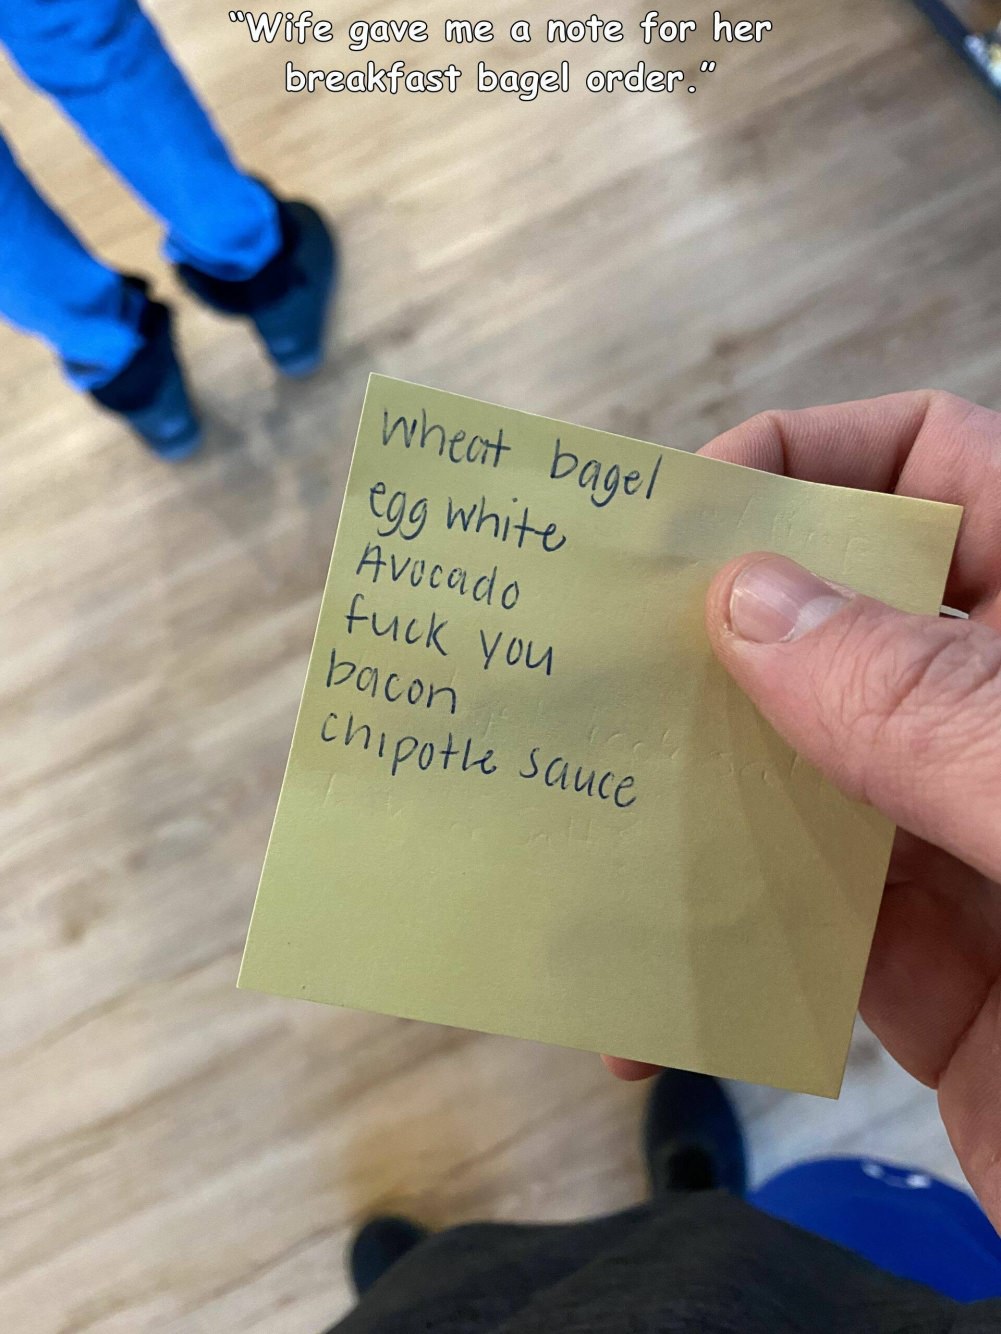 “Wife gave me a note for her
breakfast bagel order.”
wheat bagel
egg white
Avocado
fuck you
bacon
chipotle sauce